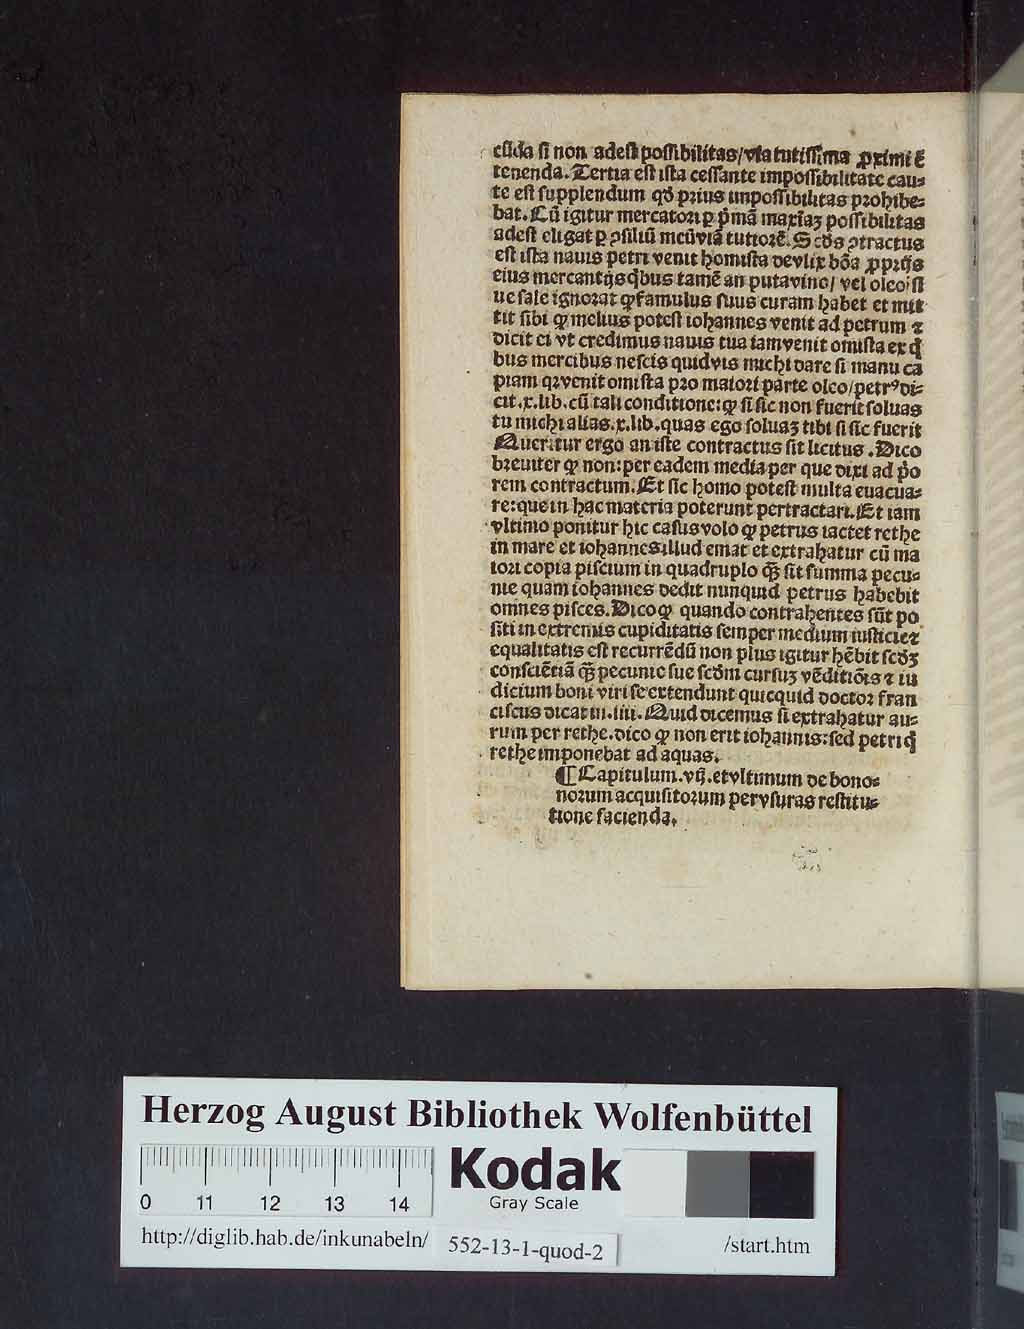 cūda si non adest possibilitas/via tutissima ꝓximi ē
tenenda. Tertia est ista cessante impossibilitate cau⸗
te est supplendum qd̄ prius impossibilitas prohibe⸗
bat. Cū igitur mercatori ꝑ pͥmā maxīaꝫ possibilitas
adest eligat ꝑ ꝯsiliū meū viā tutiorē. Scd̄s ꝯtractus
est ista nauis petri venit homista bōa ꝓprijs
eius mercantijs qͥbus tamē an puta vino/ vel oleo si
ue sale ignorat ꝙ famulus suus curam habet et mit
tit sibi ꝙ melius potest iohannes venit ad petrum ⁊
dicit ei vt credimus nauis tua iam venit omista ex q̄
bus mercibus nescis quid vis michi dare si manu ca
piam qꝛ venit omista pro maiori parte oleo/petrꝰ di⸗
cit.x.lib.cū tali conditione:ꝙ si sic non fuerit soluas
tu michi alias.x.lib.quas ego soluaꝫ tibi si sic fuerit
Queritur ergo an iste contractus sit licitus. Dico
breuiter ꝙ non:per eadem media per que dixi ad pͥo
rem contractum. Et sic homo potest multa euacua⸗
re:que in hac materia poterunt pertractari. Et iam
vltimo ponitur hic casus volo ꝙ petrus iactet rethe
in mare et iohannes illud emat et extrahatur cū ma
iori copia piscium in quadruplo q̄ꝫ sit summa pecu⸗
nie quam iohannes dedit nunquid petrus habebit
omnes pisces. Dico ꝙ quando contrahentes sūt po
siti in extremis cupiditatis semper medium iusticie ⁊
equalitatis est recurrēdū non plus igitur hēbit scd̄ꝫ
consciētiā q̄ꝫ pecunie sue scd̄m cursuꝫ vēditiōis ⁊ iu
dicium boni viri se extendunt quicquid doctor fran
ciscus dicat in.iiii. Quid dicemus si extrahatur au⸗
rum per rethe.dico ꝙ non erit iohannis:sed petri q̄
rethe imponebat ad aquas.
¶ Capitulum.vij.et vltimum de bono⸗
norum acquisitorum per vsuras restitu⸗
tione facienda.
Herzog August Bibliothek Wolfenbüttel
Kodak
Gray Scale
0 11 12 13 14
http://diglib.hab.de/inkunabeln/ 552-13-1-quod-2 /start.htm